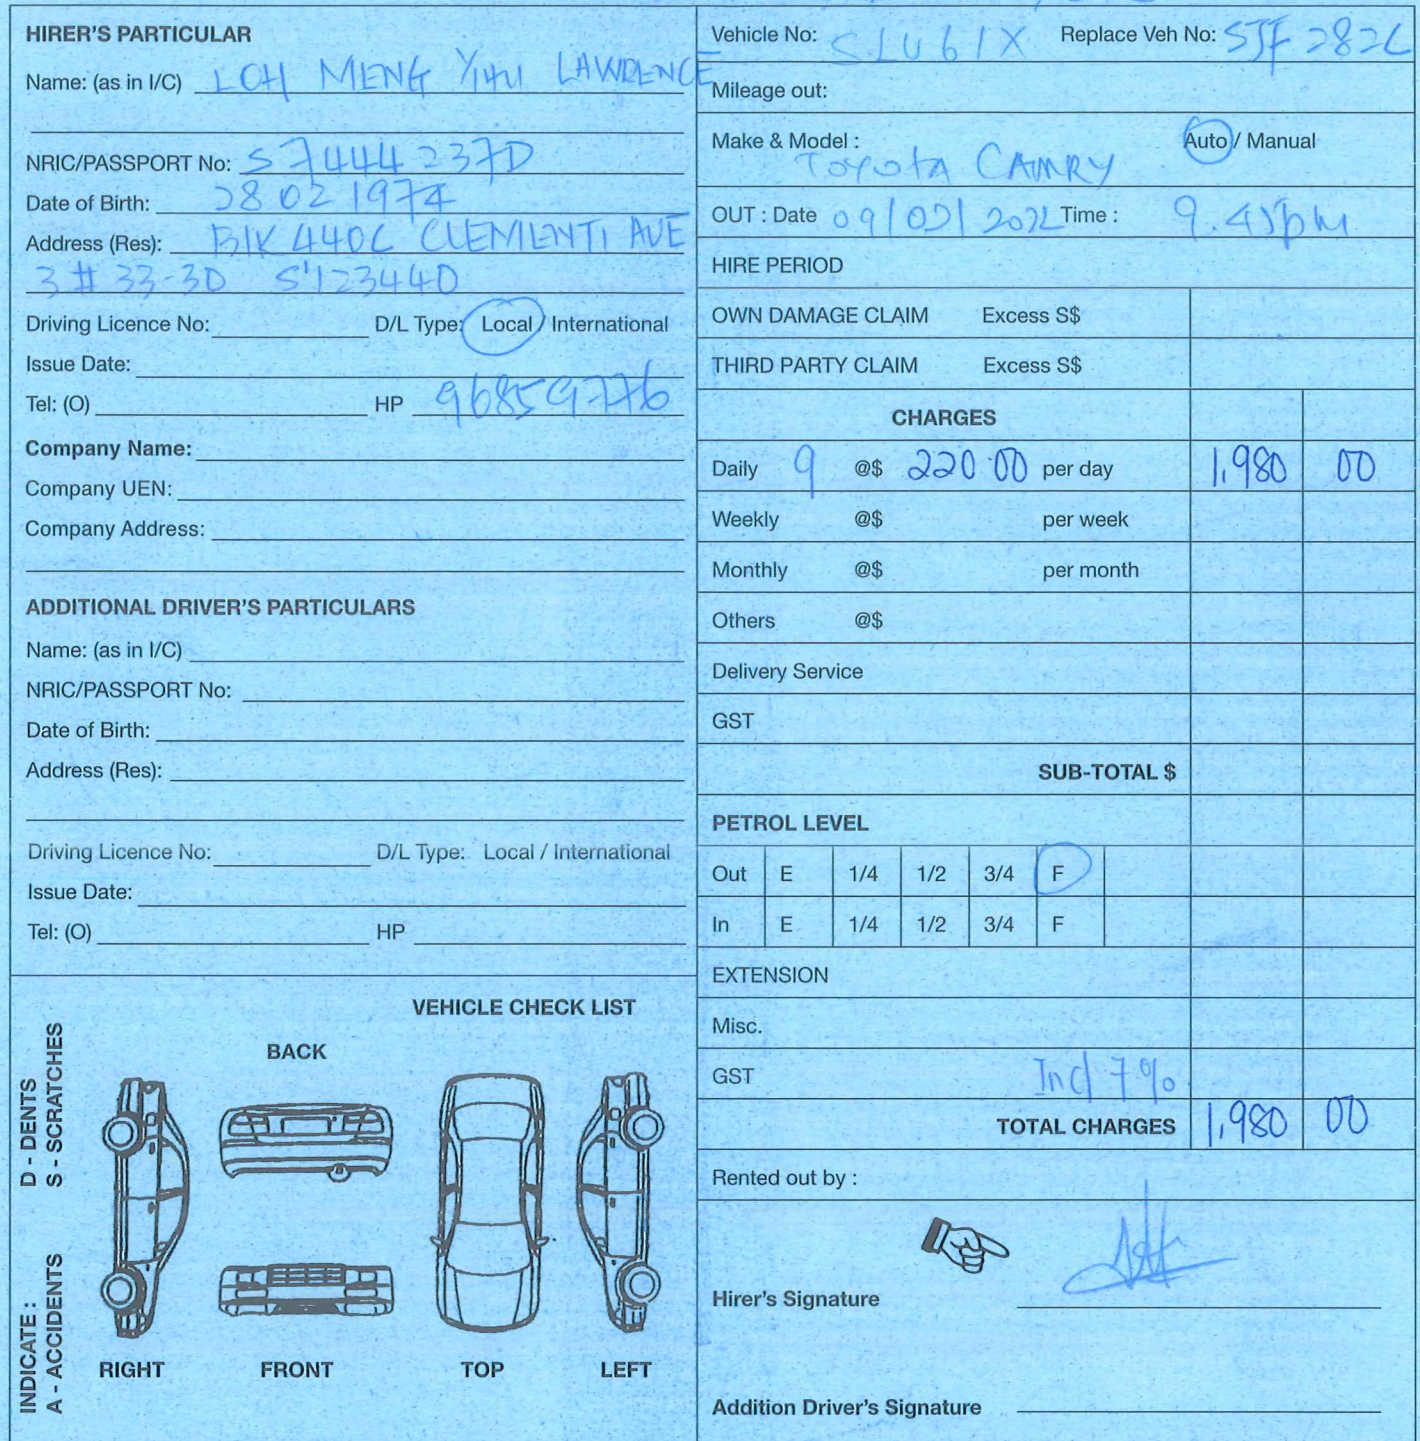 HIRER'S PARTICULAR
Name: (as in I/C) LOH MENG YIHU LAWRENCE
NRIC/PASSPORT No: S7444237D
Date of Birth: 28 02 1974
Address (Res): BlK 440C CLEMENTI AVE
3 # 33-30 S'123440
Driving Licence No: D/L Type: Local / International
Issue Date:
Tel: (O) HP 96859776
Company Name:
Company UEN:
Company Address:
ADDITIONAL DRIVER'S PARTICULARS
Name: (as in I/C)
NRIC/PASSPORT No:
Date of Birth:
Address (Res):
Driving Licence No: D/L Type: Local / International
Issue Date:
Tel: (O) HP
VEHICLE CHECK LIST
BACK
INDICATE : D - DENTS
A - ACCIDENTS S - SCRATCHES
RIGHT FRONT TOP LEFT
Vehicle No: SLU61X Replace Veh No: SJF282L
Mileage out:
Make & Model : Auto / Manual
TOYOTA CAMRY
OUT : Date 09/02/2022 Time : 9.45pm
HIRE PERIOD
OWN DAMAGE CLAIM Excess S$
THIRD PARTY CLAIM Excess S$
CHARGES
Daily 9 @$ 220.00 per day 1,980 00
Weekly @$ per week
Monthly @$ per month
Others @$
Delivery Service
GST
SUB-TOTAL $
PETROL LEVEL
Out E 1/4 1/2 3/4 F
In E 1/4 1/2 3/4 F
EXTENSION
Misc.
GST Incl 7%
TOTAL CHARGES 1,980 00
Rented out by :
Hirer's Signature
Addition Driver's Signature